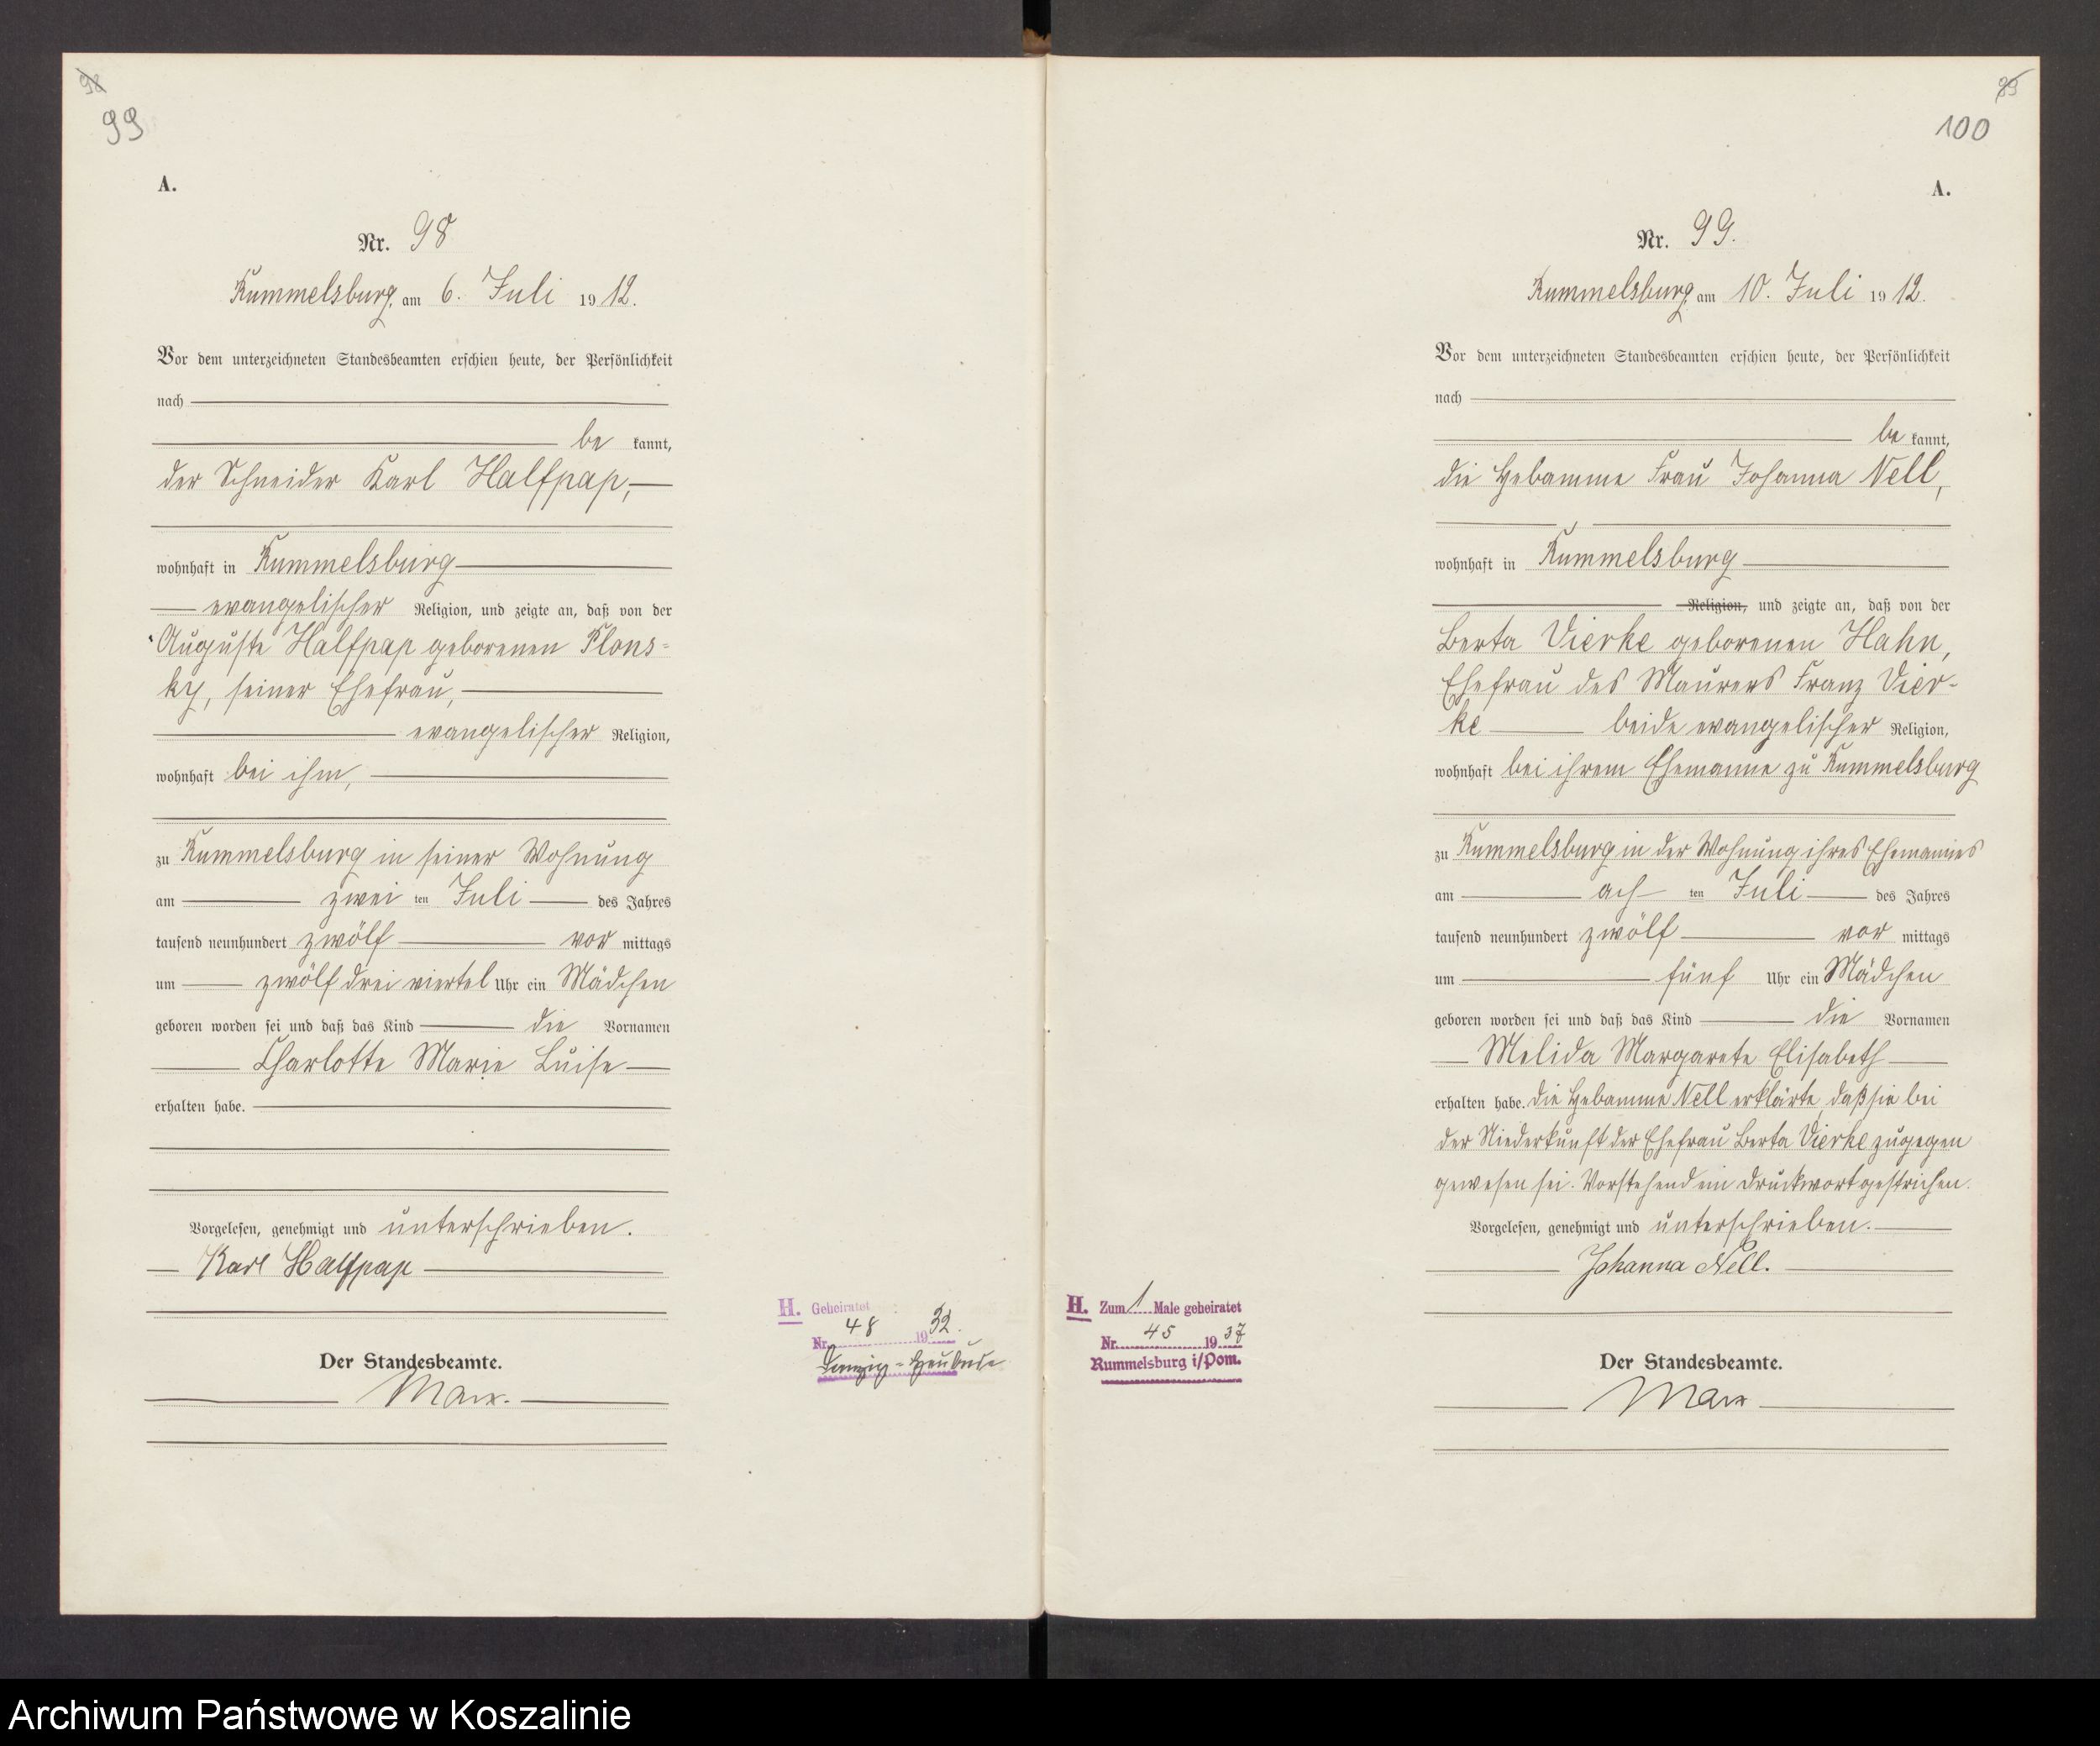 98
99
A.
Nr. 98
Rummelsburg, am 6. Juli 1912.
Vor dem unterzeichneten Standesbeamten erschien heute, der Persönlichkeit
nach
be kannt,
der Schneider Karl Halfpap,
wohnhaft in Rummelsburg
evangelischer Religion, und zeigte an, daß von der
Auguste Halfpap geborenen Plons-
ky, seiner Ehefrau,
evangelischer Religion,
wohnhaft bei ihm,
zu Rummelsburg in seiner Wohnung
am zwei ten Juli des Jahres
tausend neunhundert zwölf vor mittags
um zwölf drei viertel Uhr ein Mädchen
geboren worden sei und daß das Kind die Vornamen
Charlotte Marie Luise
erhalten habe.
Vorgelesen, genehmigt und unterschrieben.
Karl Halfpap
Der Standesbeamte.
Marx.
H. Geheiratet
Nr. 48 1932.
Danzig-Heubude
99
100
A.
Nr. 99.
Rummelsburg, am 10. Juli 1912.
Vor dem unterzeichneten Standesbeamten erschien heute, der Persönlichkeit
nach
be kannt,
die Hebamme Frau Johanna Nell,
wohnhaft in Rummelsburg
Religion, und zeigte an, daß von der
Berta Vierke geborenen Hahn,
Ehefrau des Maurers Franz Vier-
ke beide evangelischer Religion,
wohnhaft bei ihrem Ehemanne zu Rummelsburg
zu Rummelsburg in der Wohnung ihres Ehemannes
am ach ten Juli des Jahres
tausend neunhundert zwölf vor mittags
um fünf Uhr ein Mädchen
geboren worden sei und daß das Kind die Vornamen
Melida Margarete Elisabeth
erhalten habe. Die Hebamme Nell erklärte, daß sie bei
der Niederkunft der Ehefrau Berta Vierke zugegen
gewesen sei. Vorstehend ein Druckwort gestrichen.
Vorgelesen, genehmigt und unterschrieben.
Johanna Nell.
Der Standesbeamte.
Marx
H. Zum 1 Male geheiratet
Nr. 45 1937
Rummelsburg i/Pom.
Archiwum Państwowe w Koszalinie